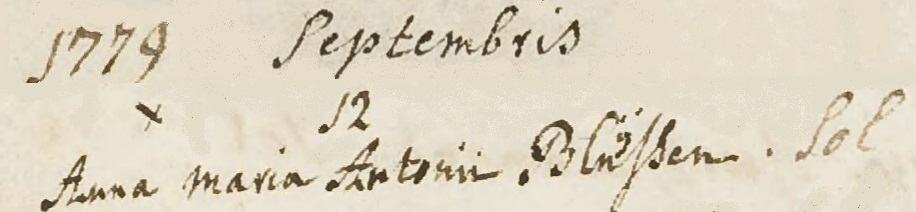 1779 Septembris
x 12
Anna maria Antonii Blüeßen. Sol